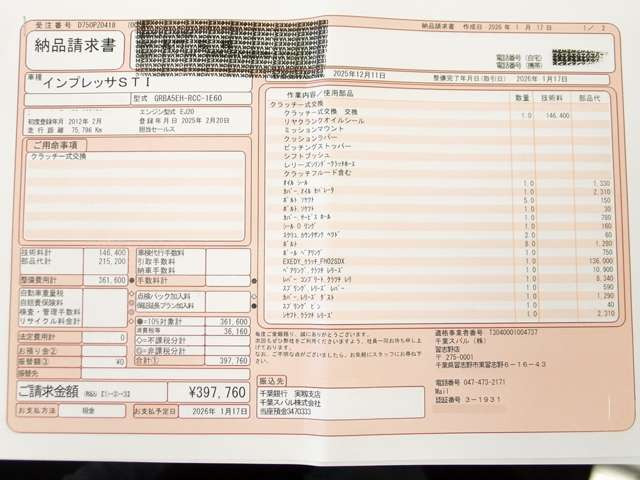 受注番号 D750PZ0418
納品請求書 作成日 2026年 1月 17日 1/ 2
納品請求書
電話番号(自宅)
電話番号(携帯)
2025年12月11日
整備完了年月日(取引日) 2026年 1月17日
車種
インプレッサSTI
型式 GRBA5EH-RCC-1E60
エンジン型式 EJ20
初度登録年月 2012年 2月 登録年月日 2025年 2月20日
走行距離 75,786 Km 担当セールス
ご用命事項
クラッチ一式交換
作業内容/使用部品 数量 技術料 部品代
クラッチ一式交換
クラッチ一式交換 交換 1.0 146,400
リヤクランクオイルシール
ミッションマウント
クラッチカバー
ピッチングストッパー
シフトブッシュ
レリーズシリンダークラッチホース
クラッチフルード含む
オイル シール 1.0 1,330
カバー,オイル セパレータ 1.0 2,310
ボルト ソケツト 5.0 150
ボルト,ソケツト 1.0 30
カバー,サービス ホール 1.0 780
シール O リング 1.0 160
スクリユ,カウンタサンク ヘツド 2.0 60
ボルト 8.0 1,280
ボール ベアリング 1.0 750
EXEDY_クラッチ_FH02SDX 1.0 136,900
ベアリング,クラツチ レリーズ 1.0 10,900
レバー コンプリート,クラツチ レリ 1.0 8,340
スプリング レリーズ レバー 1.0 590
カバー,レリーズ ダスト 1.0 1,290
スプリング ピン 1.0 40
シヤフト クラツチ レリーズ 1.0 2,310
技術料計 146,400
部品代計 215,200
整備費用計 361,600
車検代行手数料
引取手数料
納車手数料
手数料計
自動車重量税
自賠責保険料
検査・管理手数料
リサイクル料金計
点検パック加入料
保証延長プラン加入料
法定費用計 0
お預り金②
振替額③ ¥0
振替先
●=10%対象計 361,600
消費税等 36,160
◇=不課税分計
◎=非課税分計
合計① 397,760
ご請求金額 (税込) 【①-②-③】 ¥397,760
お支払方法 現金 お支払予定日 2026年 1月17日
毎度ご愛顧賜り、誠にありがとうございます。
振込先
千葉銀行 実籾支店
千葉スバル株式会社
当座預金3470333
適格事業者番号 T3040001004737
千葉スバル(株)
習志野店
〒 275-0001
千葉県習志野市東習志野6-16-43
電話番号 047-473-2171
Mail
認証番号 3-1931